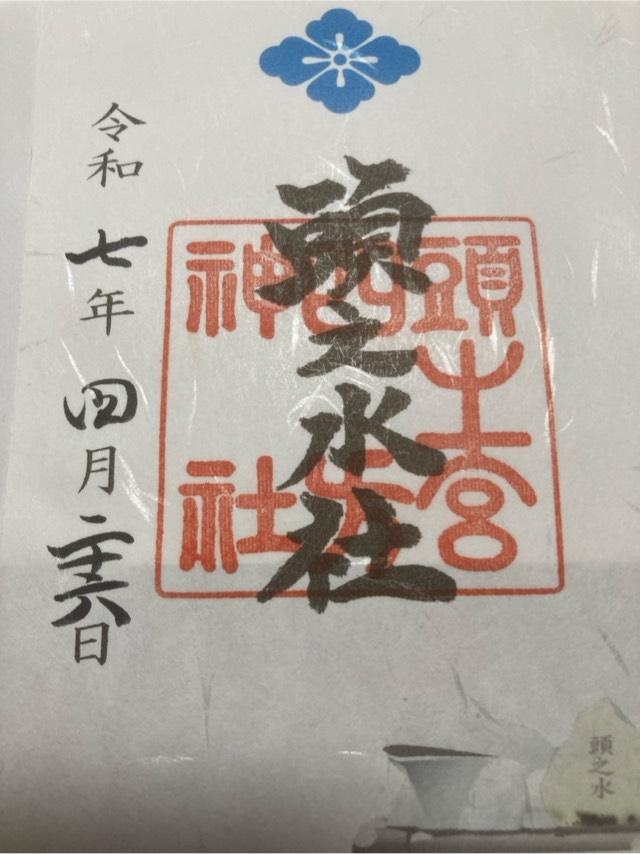 頭之水社
頭之宮
四方
神社
令和七年四月二十六日
頭之水